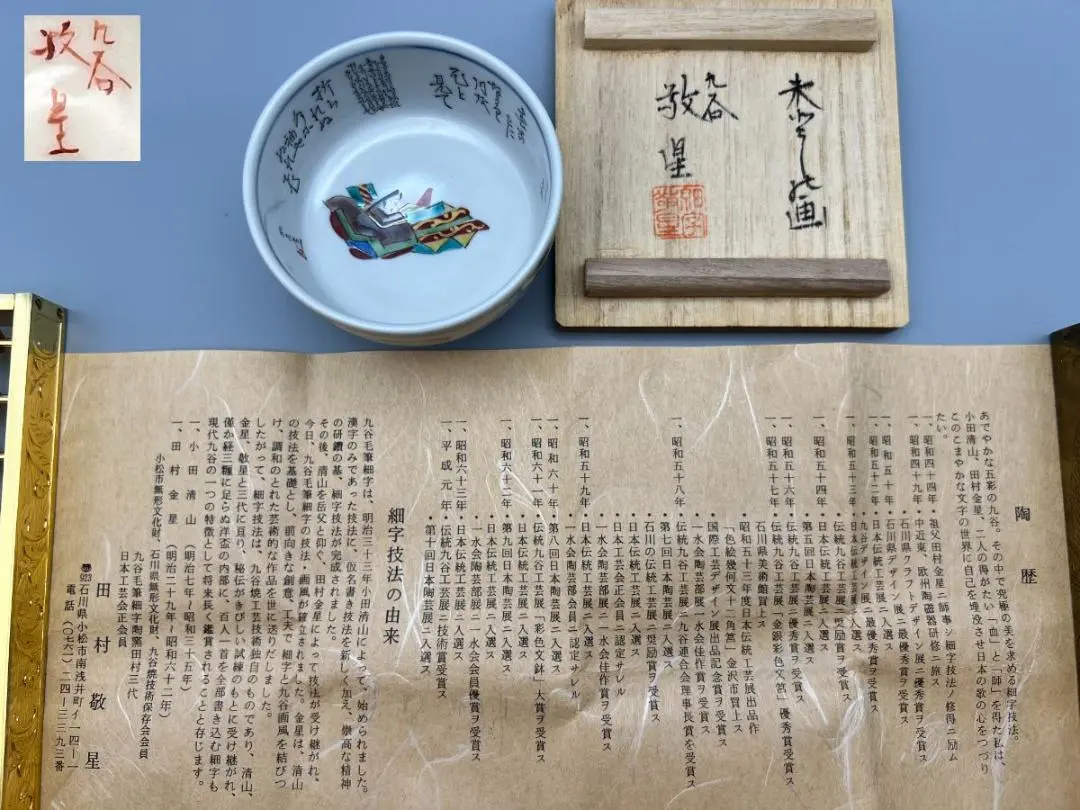 九谷
敬星
九谷
敬星
陶歴
あでやかな五彩の九谷。その中で究極の美を求める細字技法。
小田清山、田村金星、二人の得がたい「血」と「師」を得た私は、
このこまやかな文字の世界に自己を埋没させ日本の歌の心をつづり
たい。
一、昭和四十四年・祖父田村金星ニ師事シ細字技法ノ修得ニ励ム
一、昭和四十九年・中近東、欧州陶磁器研修ニ旅ス
・石川県クラフトデザイン展ニ優秀賞ヲ受賞ス
一、昭和五十年・石川県デザイン展ニ最優秀賞ヲ受賞ス
一、昭和五十二年・日本伝統工芸展ニ入選ス
・九谷デザイン展ニ最優秀賞ヲ受賞ス
一、昭和五十三年・日本伝統工芸展ニ入選ス
・伝統九谷工芸展ニ奨励賞ヲ受賞ス
一、昭和五十四年・日本伝統工芸展ニ入選ス
・第五回日本陶芸展ニ入選ス
一、昭和五十六年・伝統九谷工芸展ニ優秀賞ヲ受賞ス
一、昭和五十七年・伝統九谷工芸展「金銀彩色文筥」優秀賞受賞ス
石川県美術館買上
・昭和五十三年度日本伝統工芸展出品作
「色絵幾何文十二角筥」金沢市買上ス
・国際工芸デザイン展出品記念賞ヲ受賞ス
・一水会陶芸部展ニ一水会佳作賞ヲ受賞ス
一、昭和五十八年・伝統九谷工芸展ニ九谷連合会理事長賞を受賞ス
・第七回日本陶芸展ニ入選ス
・石川の伝統工芸展ニ奨励賞ヲ受賞ス
・日本工芸会正会員ニ認定サレル
・一水会陶芸部展ニ一水会佳作賞ヲ受賞ス
一、昭和五十九年・日本伝統工芸展ニ入選ス
・一水会陶芸部会員ニ認定サレル
一、昭和六十年・第八回日本陶芸展ニ入選ス
一、昭和六十一年・伝統九谷工芸展「彩色文鉢」大賞ヲ受賞ス
・日本伝統工芸展ニ入選ス
一、昭和六十二年・第九回日本陶芸展ニ入選ス
・日本伝統工芸展ニ入選ス
・一水会陶芸展ニ一水会会員優賞ヲ受賞ス
一、昭和六十三年・日本伝統工芸展ニ入選ス
一、平成元年・伝統九谷工芸展ニ技術賞受賞ス
・第十回日本陶芸展ニ入選ス
細字技法の由来
九谷毛筆細字は、明治三十三年小田清山によって、始められました。
漢字のみであった技法に、仮名書き技法を新しく加え、崇高な精神
の研鑽の基、細字技法が完成されました。
その後、清山を岳父と仰ぐ、田村金星によって技法が受け継がれ、
今日、九谷毛筆細字の技法・画風が確立されました。金星は、清山
の技法を基礎とし、前向きな創意、工夫で細字と九谷画風を結びつ
け、調和のとれた芸術的な作品を世に送りだしました。
したがって、細字技法は、九谷焼工芸技術独自のものであり、清山、
金星、敬星と三代に亘り、秘伝がきびしい試練のもとに受け継がれ、
僅か経三糎に足らぬ洋盃の内部に、百人一首を全部書き込む細字も
現代九谷の一つの特徴として将来長く鑑賞されることと存じます。
一、小田清山（明治七年〜昭和三十五年）
一、田村金星（明治二十九年〜昭和六十二年）
小松市無形文化財、石川県無形文化財、九谷焼技術保存会会員
九谷毛筆細字陶窯田村三代
日本工芸会正会員
田村敬星
〒923石川県小松市南浅井町イ一四一一
電話（〇七六一）二四一三三九三番